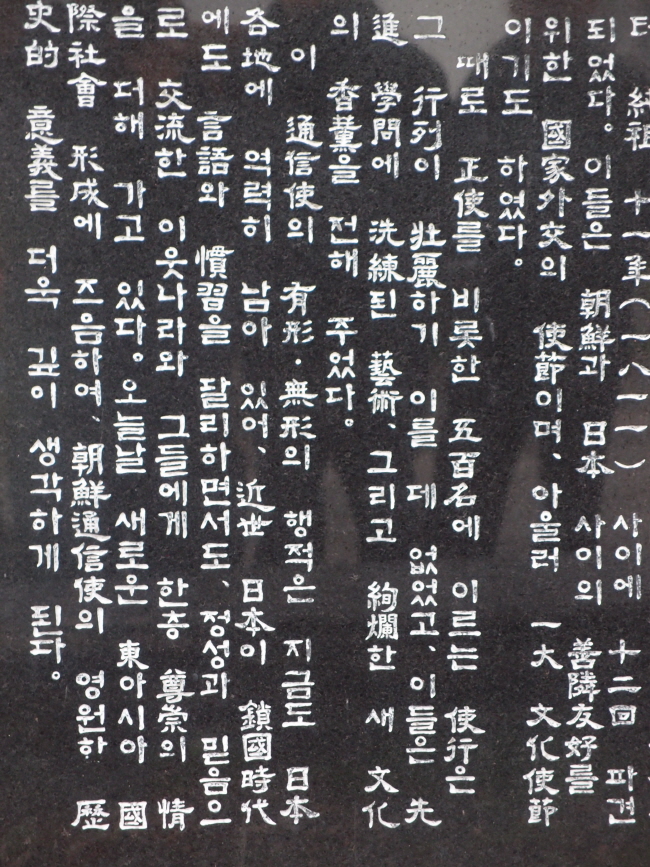 터 純祖 十一年(一八一一) 사이에 十二回 파견
되었다。이들은 朝鮮과 日本 사이의 善隣友好를
위한 國家外交의 使節이며、아울러 一大 文化使節
이기도 하였다。
때로 正使를 비롯한 五百名에 이르는 使行은
그 行列이 壯麗하기 이를 데 없었고、이들은 先
進 學問에 洗練된 藝術、그리고 絢爛한 새 文化
의 香薰을 전해 주었다。
이 通信使의 有形·無形의 행적은 지금도 日本
各地에 역력히 남아 있어、近世 日本이 鎖國時代
에도 言語와 慣習을 달리하면서도、정성과 믿음으
로 交流한 이웃나라와 그들에게 한층 尊崇의 情
을 더해 가고 있다。오늘날 새로운 東아시아 國
際社會 形成에 즈음하여、朝鮮通信使의 영원한 歷
史的 意義를 더욱 깊이 생각하게 된다。